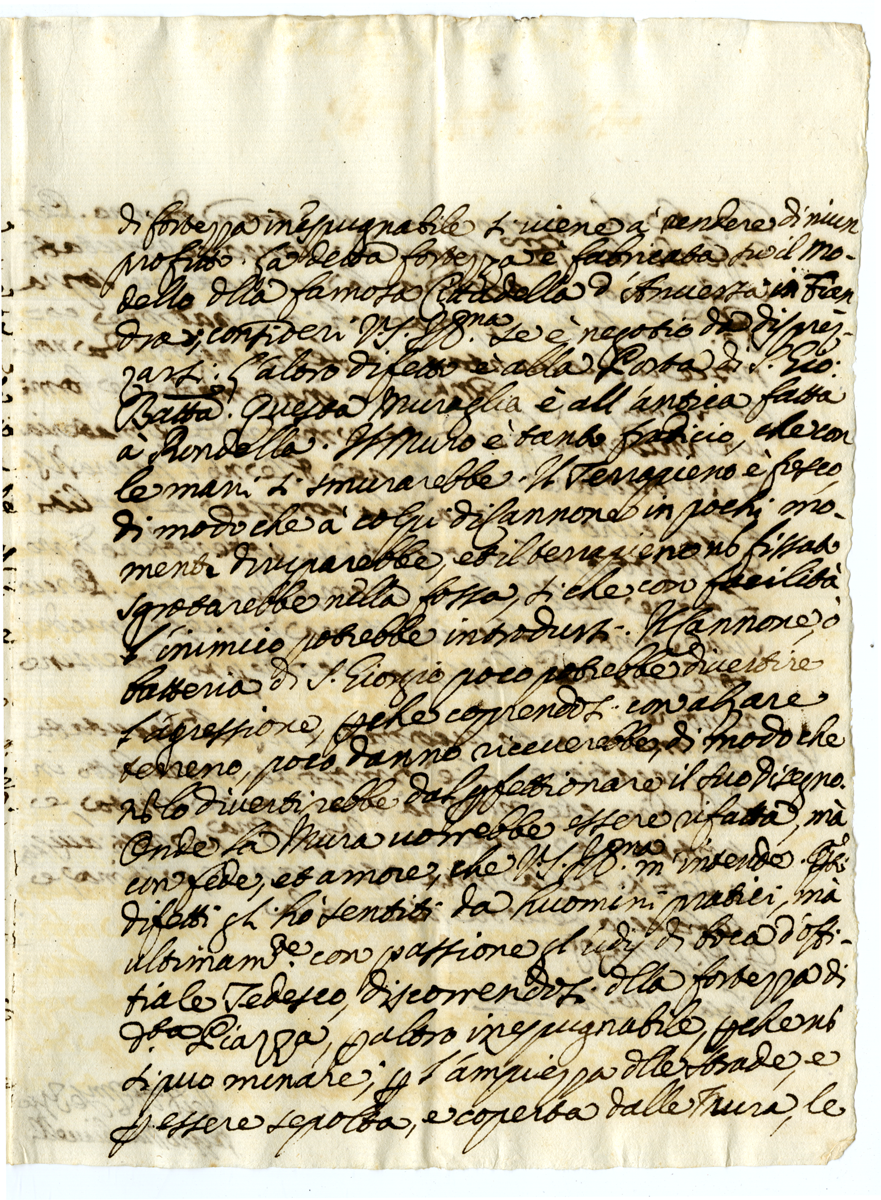 di fortezza inespugnabile si viene à rendere di niun
profitto. La detta fortezza è fabricata su il mo-
dello dlla famosa Cittadella d'Anversa in Fian
dra; consideri V.S. Ill.ma se è negotio da disprez-
zarsi. L'altro difetto è alla Porta di S. Gio:
Batta. Questa Muraglia è all'antica fatta
à Rondella. Il Muro è tanto fradicio, che con
le mani si smurarebbe. Il Terrapieno è fresco,
di modo che à colpi di Cannone in pochi mo-
menti diruparebbe, et il terrapieno nõ fissato
sgrotarebbe nella fossa, si che con facilità
l'inimico potrebbe introdursi. Il Cannone, ò
batteria di S. Giorgio poco potrebbe divertire
l'agressione, pche coprendosi con alzare
terreno, poco danno riceverebbe, di modo che
nõ lo divertirebbe dal pfettionare il suo disegno.
Onde la Mura vorrebbe essere rifatta, mà
con fede, et amore, che V.S. Ill.ma m'intende. Qsti
difetti gli hò sentiti da huomini pratici, mà
ultimamte con passione gl'udij di boca d'offi-
tiale Tedesco, discorrendosi dlla fortezza di
dta Piazza, p altro inespugnabile, pche nõ
si può minare; p l'ampiezza dlle strade, e
p essere sepolta, e coperta dalle Mura, le